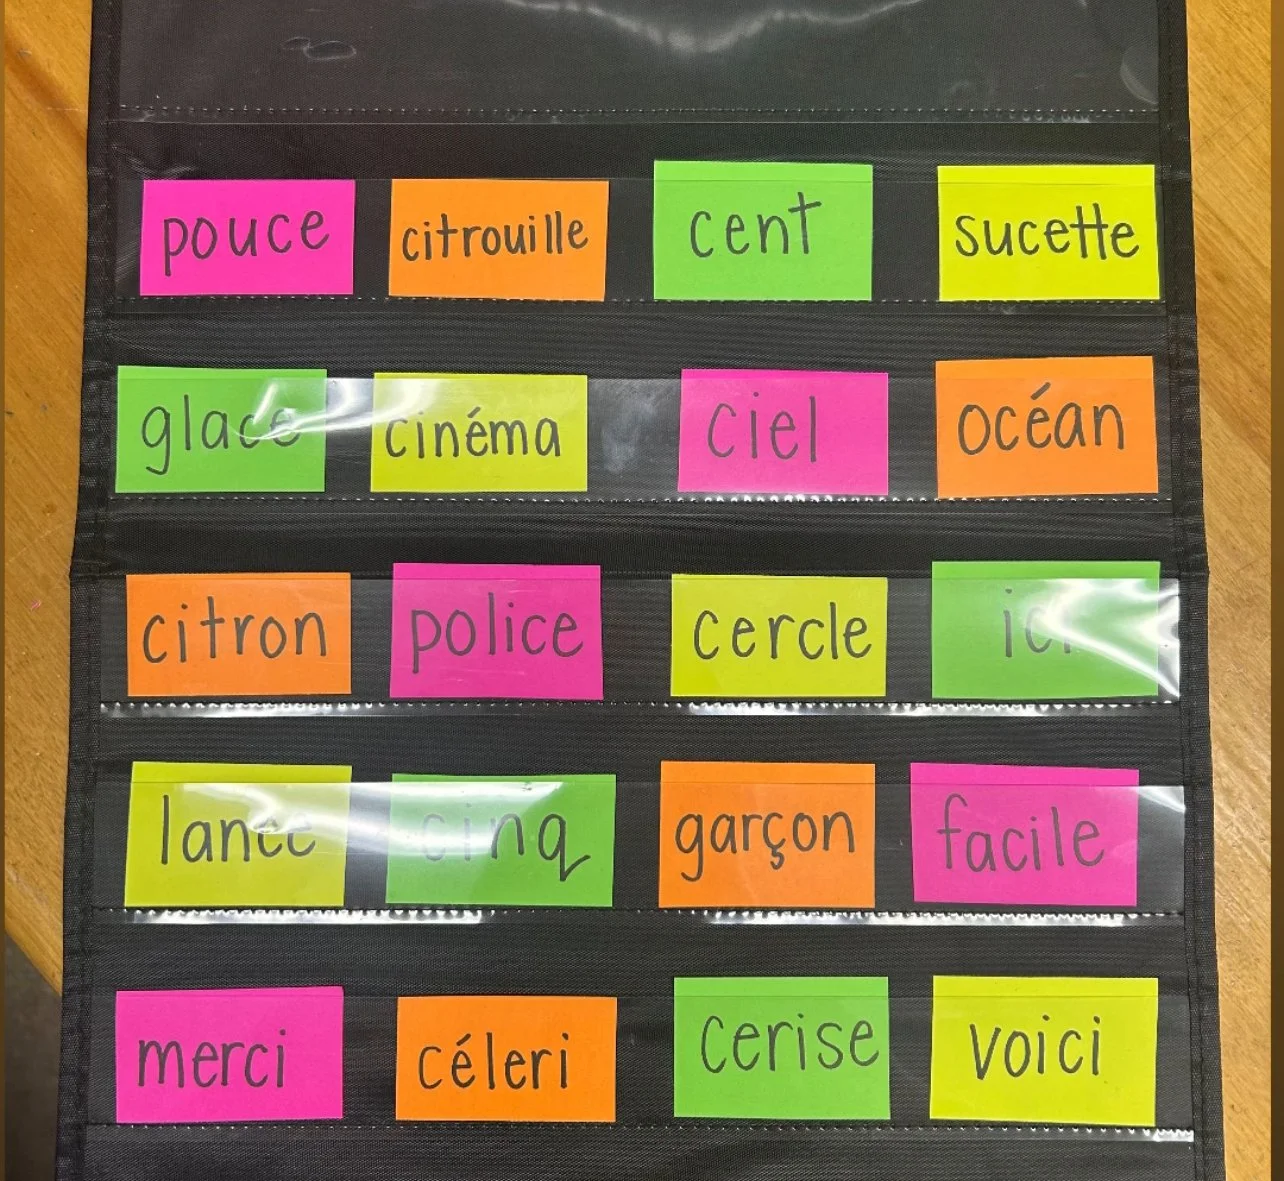 pouce citrouille cent sucette
glace cinéma ciel océan
citron police cercle ici
lance cinq garçon facile
merci céleri cerise voici